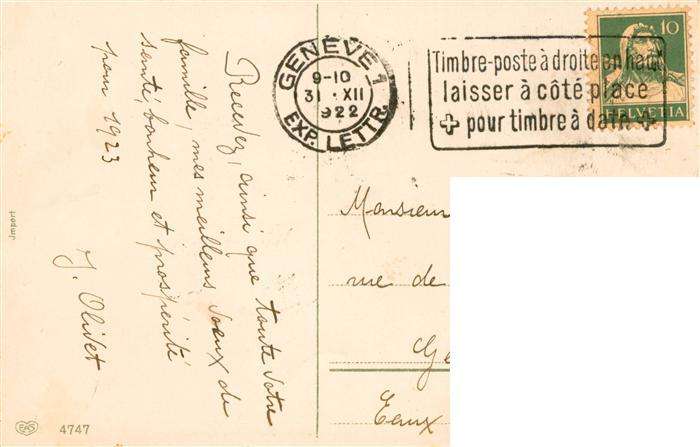 Recevez, ainsi que toute votre
famille, mes meilleurs voeux de
santé, bonheur et prospérité
pour 1923
J. Olivet
GENÈVE 1
9-10
31·XII
1922
EXP. LETTR.
Timbre-poste à droite en haut
laisser à côté place
pour timbre à date
10
HELVETIA
Monsieur
rue de
Ge
Eaux
Import
EAS
4747